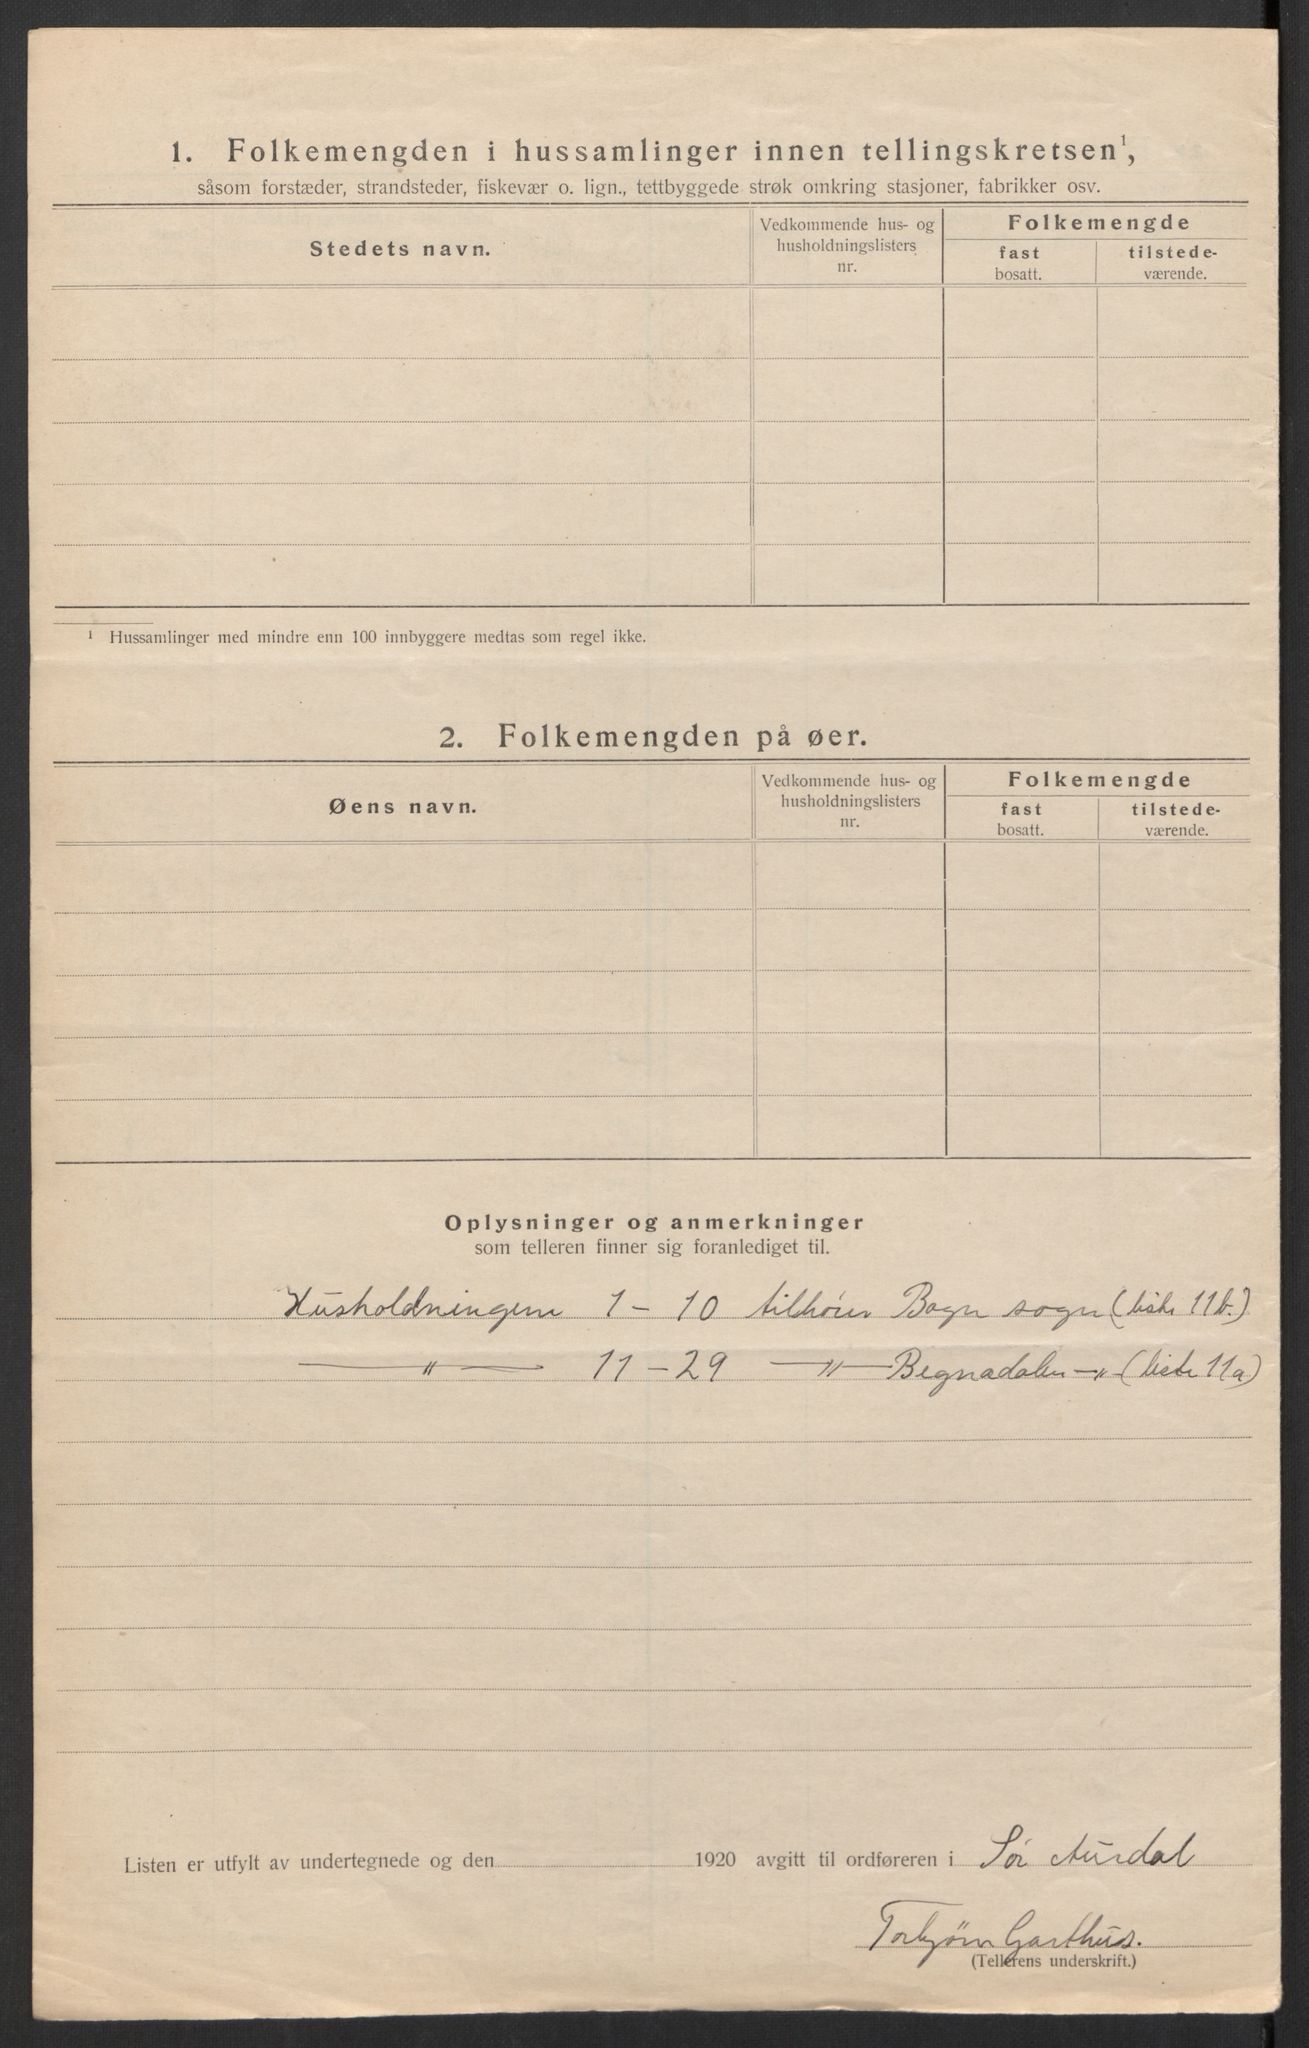 1. Folkemengden i hussamlinger innen tellingskretsen¹,
såsom forstæder, strandsteder, fiskevær o. lign., tettbyggede strøk omkring stasjoner, fabrikker osv.
Stedets navn.
Vedkommende hus- og
husholdningslisters
nr.
Folkemengde
fast
bosatt.
tilstede-
værende.
¹ Hussamlinger med mindre enn 100 innbyggere medtas som regel ikke.
2. Folkemengden på øer.
Øens navn.
Vedkommende hus- og
husholdningslisters
nr.
Folkemengde
fast
bosatt.
tilstede-
værende.
Oplysninger og anmerkninger
som telleren finner sig foranlediget til.
Husholdningene 1 - 10 tilhører Bagn sogn (liste 11b.)
—〃— 11 - 29 —〃— Begnadalen -〃- (liste 11a)
Listen er utfylt av undertegnede og den 1920 avgitt til ordføreren i Sør Aurdal
Torbjørn Garthus.
(Tellerens underskrift.)